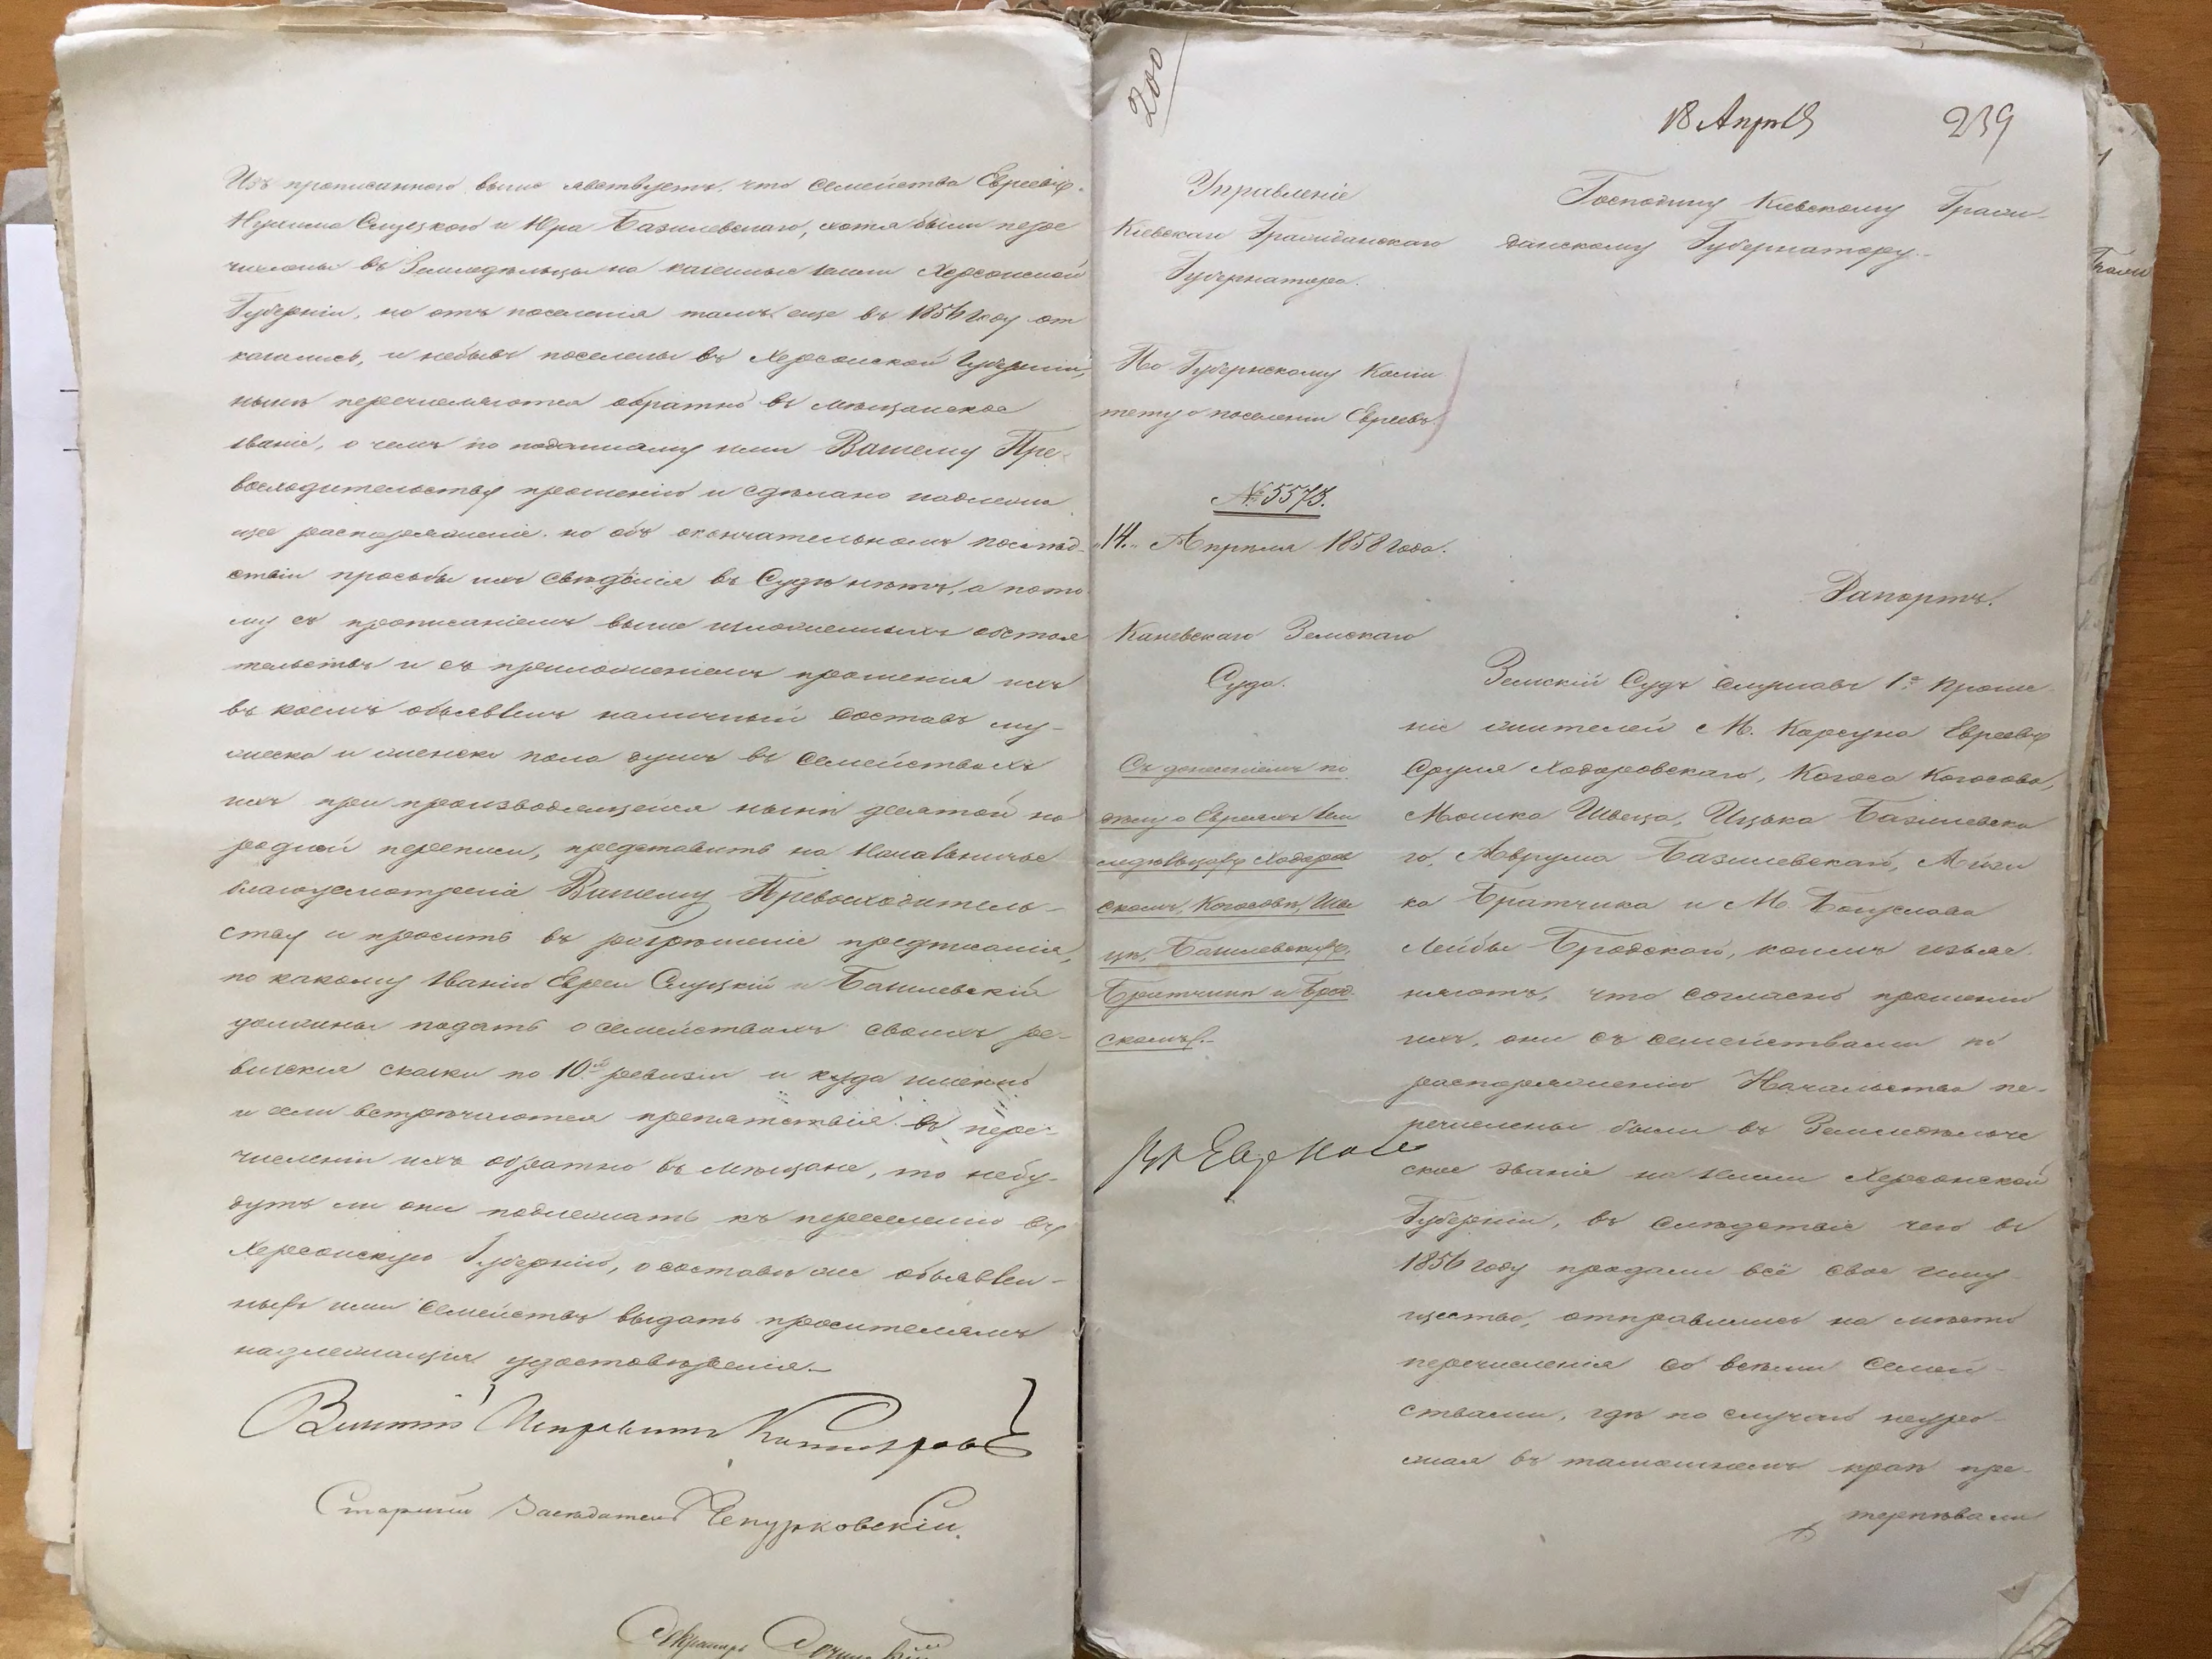 Изъ прописаннаго выше явствуетъ, что семейства Евреевъ
Нухима Слуцкаго и Юра Базилевскаго, хотя были пере
числены въ Земледѣльцы на казенныя земли Херсонской
Губерніи, но отъ поселенія тамъ еще въ 1856 году от
казались, и небывъ поселены въ Херсонской Губерніи,
нынѣ перечисляются обратно въ мѣщанское
званіе, о чемъ по поданному ими Вашему Пре
восходительству прошенію и сдѣлано надлежа
щее распоряженіе. но объ окончательномъ послѣд
ствіи просьбы ихъ свѣдѣнія въ Судѣ нѣтъ, а пото
му съ прописаніемъ выше изложенныхъ обстоя
тельствъ и съ приложеніемъ прошенія ихъ
въ коемъ объявленъ наличный составъ му-
жеска и женска пола душъ въ семействахъ
ихъ при производящейся нынѣ десятой на
родной переписи, представить на Начальничье
благоусмотреніе Вашему Превосходитель-
ству и просить въ разрѣшеніе предписанія,
по какому званію Евреи Слуцкій и Базилевскій
должны подать о семействахъ своихъ ре-
визскія сказки по 10й ревизіи и куда именно
и если встрѣчаются препятствія въ пере-
численіи ихъ обратно въ мѣщане, то небу-
дутъ ли они подлежать къ переселенію въ
Херсонскую Губернію, о составѣ же объявлен-
ныхъ ими семействъ выдать просителямъ
надлежащія удостовѣренія.
Исправникъ
Старшій Засѣдатель Чепурковскій.
Секретарь
200
18 Апрѣля
239
Управленіе
Кіевскаго Гражданскаго
Губернатора.
По Губернскому Коми
тету о поселеніи Евреевъ
№ 5573.
„14„ Апрѣля 1858 года.
Каневскаго Земскаго
Суда.
Съ донесеніемъ по
дѣлу о Евреяхъ Зем
ледѣльцахъ Ходоров
скомъ, Когосовѣ, Шве
цѣ, Базилевскихъ,
Братчикѣ и Брод
скомъ.
Господину Кіевскому Граж-
данскому Губернатору.
Рапортъ.
Земскій Судъ слушавъ 1е Проше
ніе жителей М. Корсуна Евреевъ
Сруля Ходоровскаго, Когоса Когосова,
Мошка Швеца, Ицька Базилевска
го, Аврума Базилевскаго, Айзи
ка Братчика и М. Богуслава
Лейбы Бродскаго, коимъ изъяс
няютъ, что согласно прошенію
ихъ, они съ семействами по
распоряженію Начальства пе-
речислены были въ Земледѣльче
ское званіе на земли Херсонской
Губерніи, въ слѣдствіе чего въ
1856 году продали всё свое иму
щество, отправились на мѣсто
перечисленія со всѣми Семей
ствами, гдѣ по случаю неуро-
жая въ тамошнемъ краѣ пре-
терпѣвали